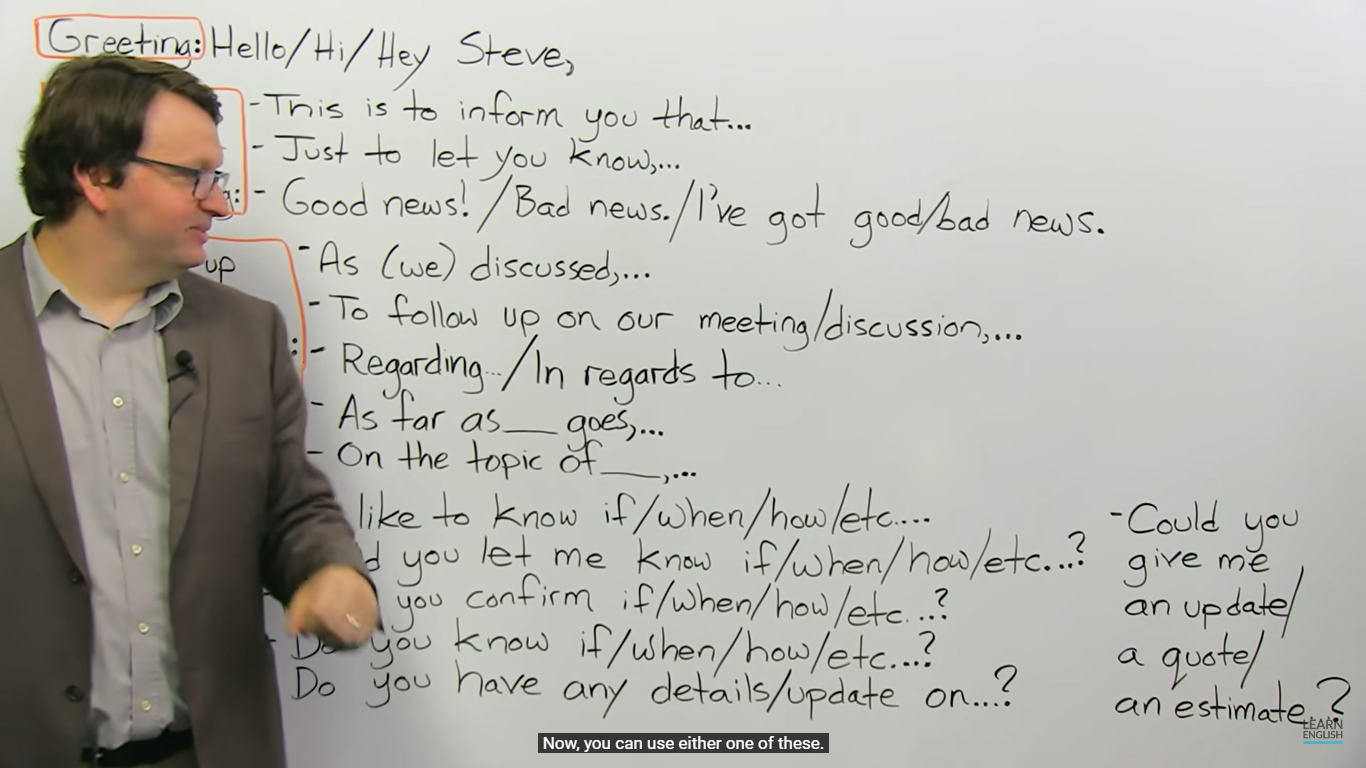 Greeting: Hello/Hi/Hey Steve,
- This is to inform you that...
- Just to let you know,...
- Good news! /Bad news./I've got good/bad news.
up
- As (we) discussed,...
- To follow up on our meeting/discussion,...
: - Regarding.../In regards to...
- As far as ___ goes,...
- On the topic of ___,...
like to know if/when/how/etc....
you let me know if/when/how/etc...?
you confirm if/when/how/etc...?
- Do you know if/when/how/etc...?
Do you have any details/update on...?
- Could you
give me
an update/
a quote/
an estimate?
LEARN
ENGLISH
Now, you can use either one of these.